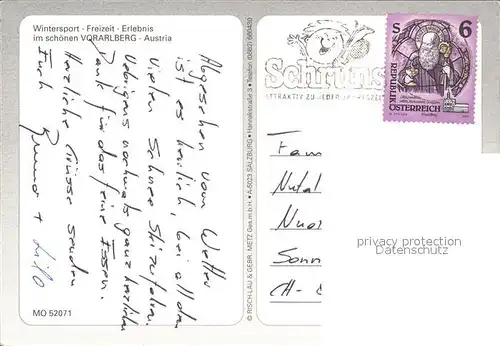 Wintersport - Freizeit - Erlebnis
im schönen VORARLBERG - Austria
Abgesehen vom Wetter
ist es herrlich, bei all dem
vielen Schnee Skizufahren.
Uebrigens nochmals ganz herzlichen
Dank für das feine Essen.
Herzliche Grüsse senden
Euch
Bruno + Lilo
MO 52071
© RISCH-LAU & GEBR. METZ Ges.m.b.H. • A-5023 SALZBURG • Telefon
Schruns
ATTRAKTIV ZU JEDER
S 6
REPUBLIK
ÖSTERREICH
Fam
Sonn
CH-
privacy protection
Datenschutz